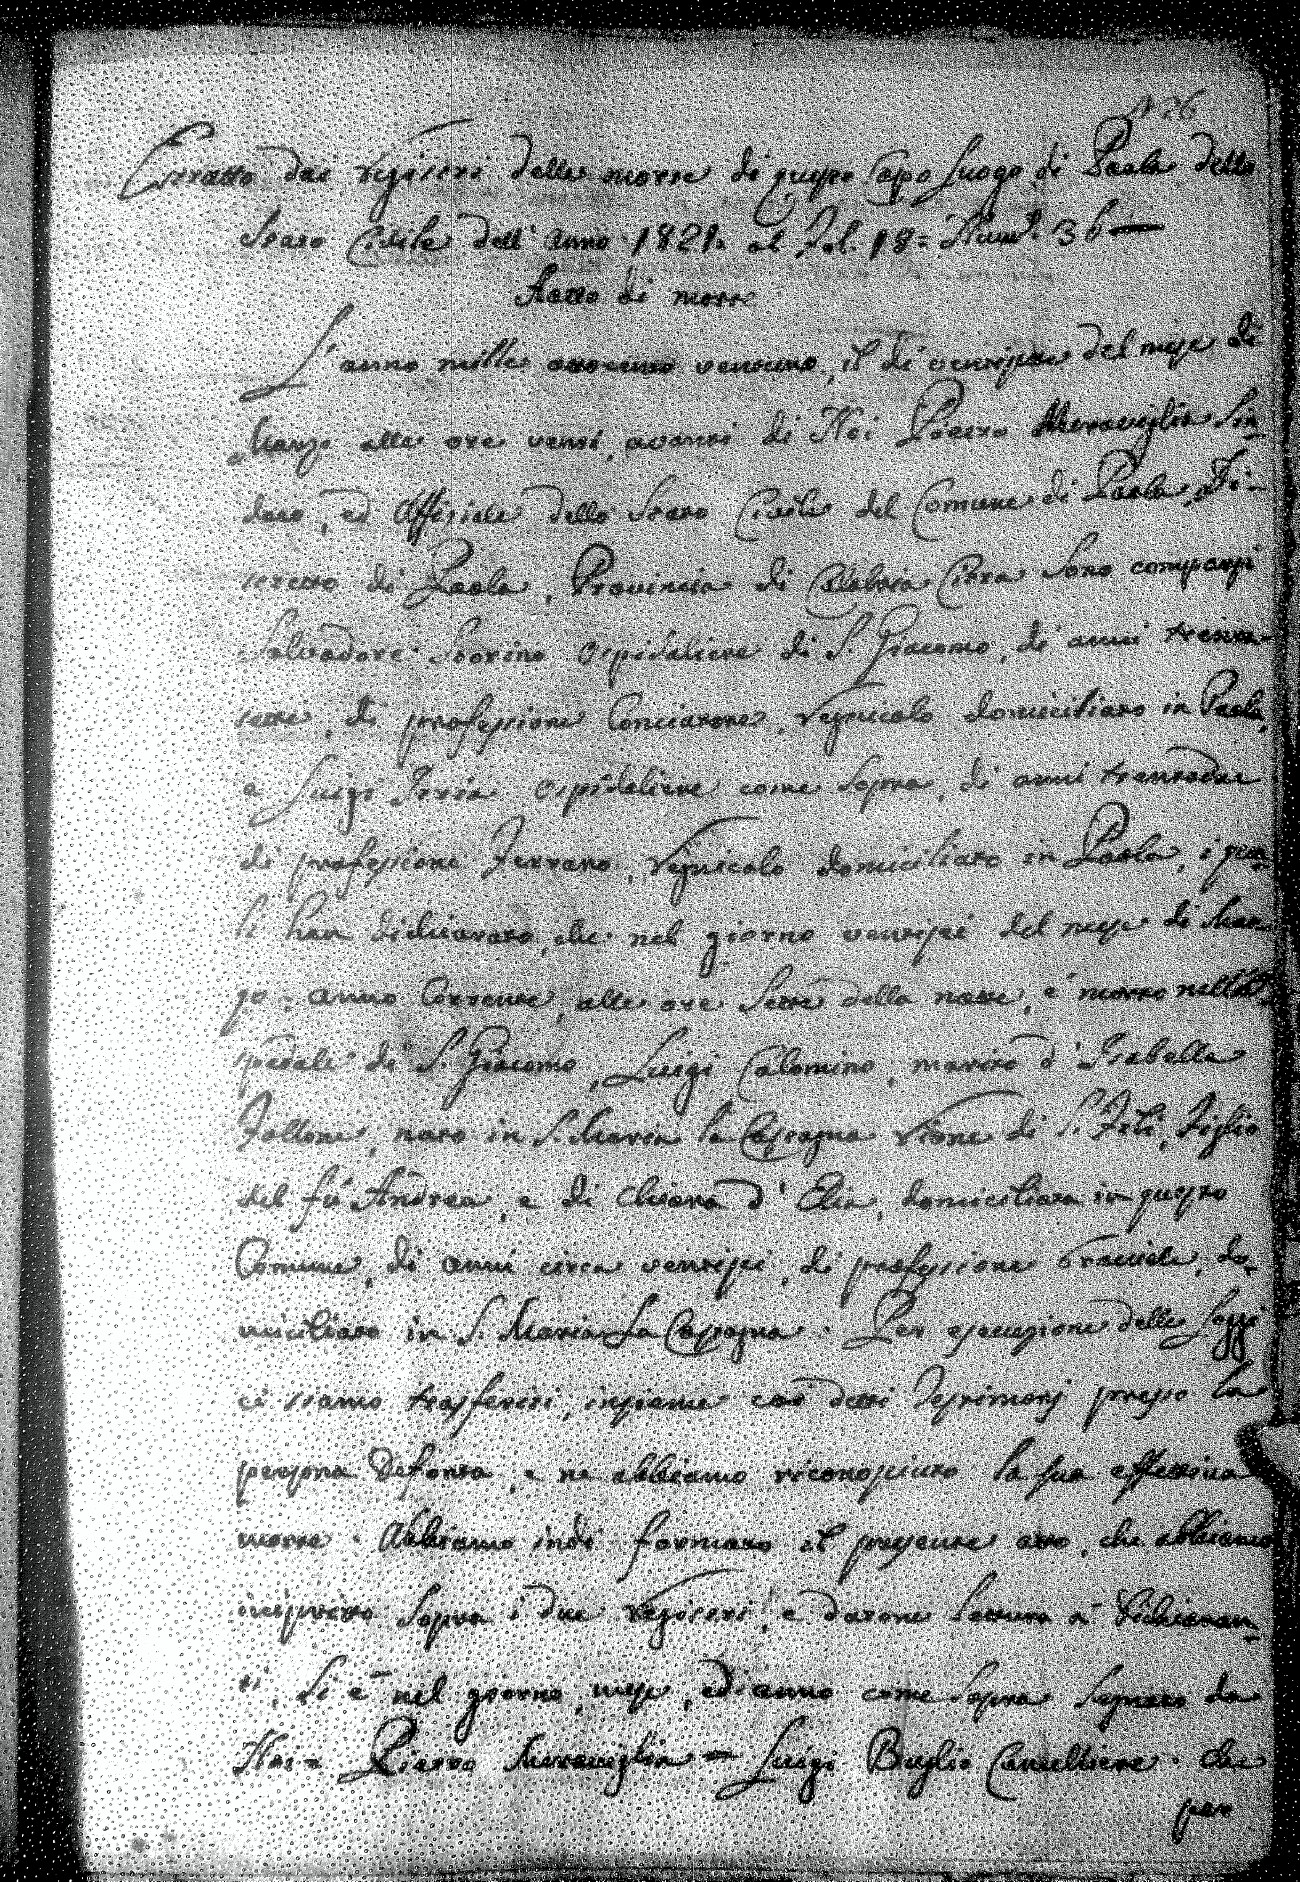 Estratto dai registri delle morte di questo Capo Luogo di Paola dello
Stato Civile dell'anno 1821. al Fol. 18= Num.° 36
Atto di morte
L'anno mille ottocento ventuno, il di ventisette del mese di
Marzo alle ore venti, avanti di Noi Pietro Meraviglia Sin
daco, ed Offiziale dello Stato Civile del Comune di Paola, Di-
stretto di Paola, Provincia di Calabria Citra Sono comparsi
Salvadore Ospidaliere di S. Giacomo, di anni trenta
sette, di professione Conciatore, regnicolo domiciliato in Paola,
e Luigi Ospidaliere come Sopra, di anni trentadue
di professione Ferraro, regnicolo domiciliato in Paola, i qua
li han dichiarato, che nel giorno ventisei del mese di Mar
zo anno Corrente, alle ore Sette della notte, e' morto nell'O
spedale di S. Giacomo, Luigi Calomino, marito d'Isabella
Follone, nato in S. Maria la Castagna Rione di S. Fili, Figlio
del fù Andrea, e di Chiara d'Elia, domiciliata in questo
Comune, di anni circa ventisei, di professione Bracciale, do
miciliato in S. Maria La Castagna. Per esecuzione delle Leggi
ci siamo trasferiti, insieme coi detti Testimonj presso la
persona Defonta, e ne abbiamo riconosciuto la sua effettiva
morte. Abbiamo indi formato il presente atto, che abbiamo
inscritto Sopra i due registri, e datone Lettura a' Dichiaran
ti, Si e' nel giorno, mese, ed anno come Sopra Segnato da
Noi= Pietro Meraviglia= Luigi Buglio Cancelliere. Che
per